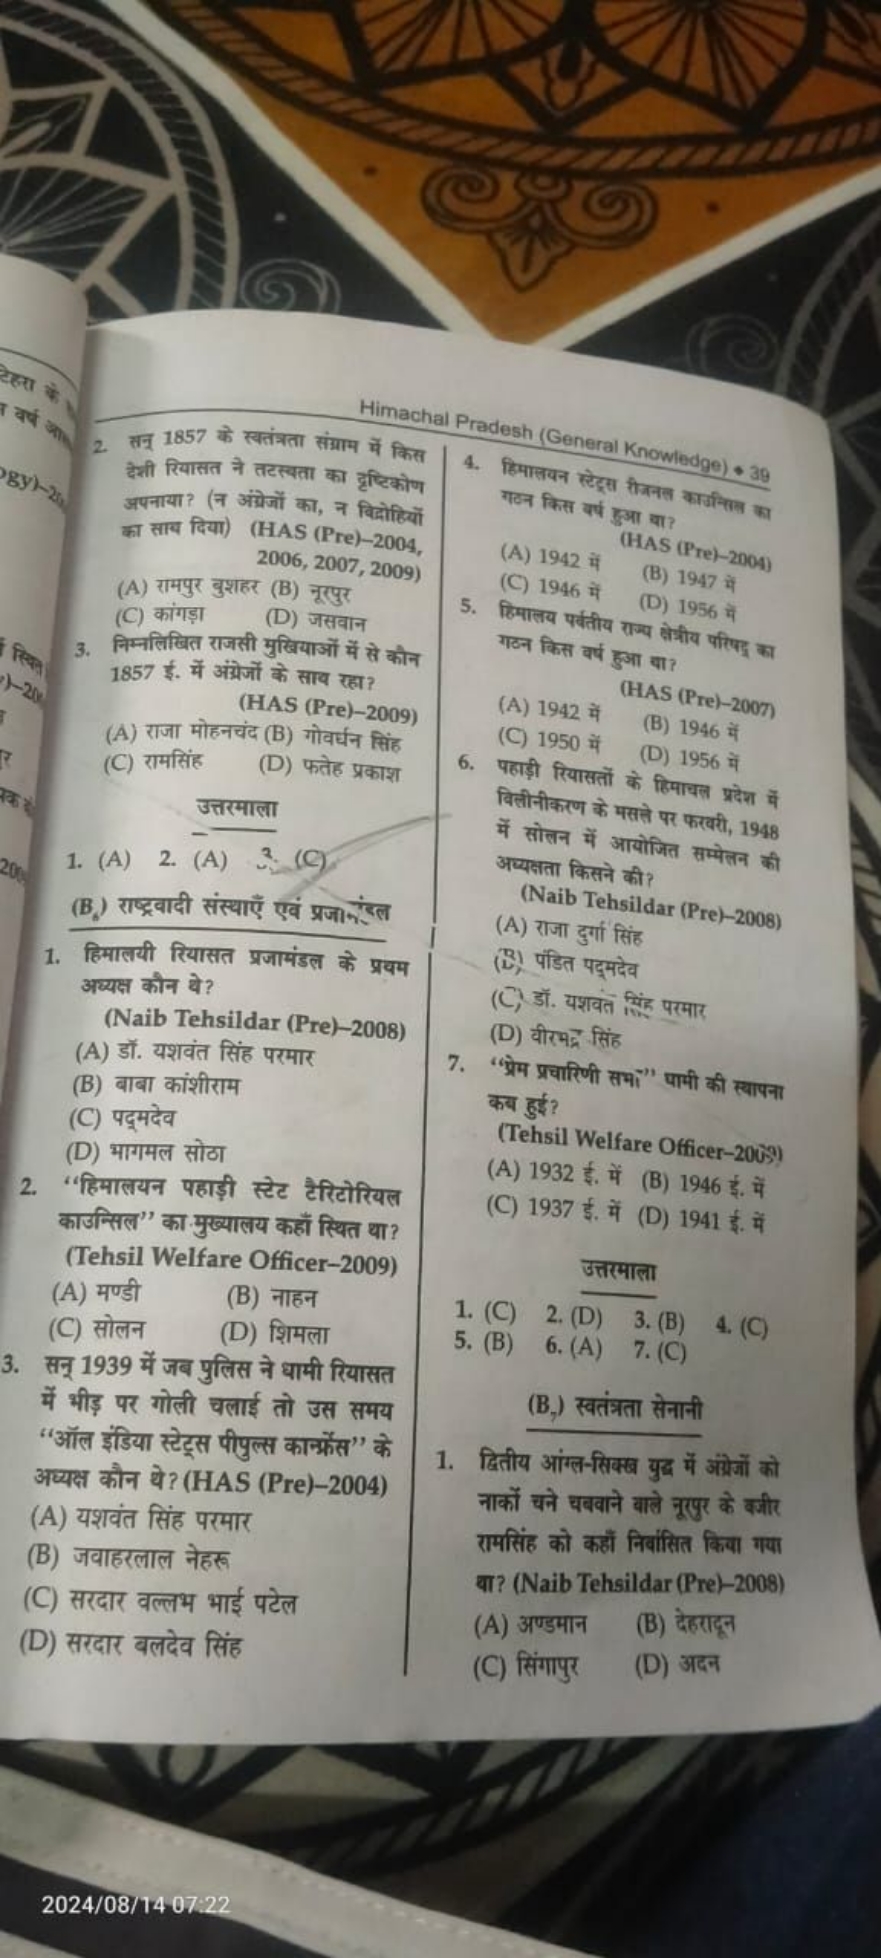 टेहरा के
वर्ष
ogy)–20
स्थित
200
Himachal Pradesh (General Knowledge) ♦ 39
2. सन् 1857 के स्वतंत्रता संग्राम में किस
देशी रियासत ने तटस्थता का दृष्टिकोण
अपनाया? (न अंग्रेजों का, न विद्रोहियों
का साथ दिया) (HAS (Pre)–2004,
2006, 2007, 2009)
(A) रामपुर बुशहर (B) नूरपुर
(C) कांगड़ा (D) जसवान
3. निम्नलिखित राजसी मुखियाओं में से कौन
1857 ई. में अंग्रेजों के साथ रहा?
(HAS (Pre)–2009)
(A) राजा मोहनचंद (B) गोवर्धन सिंह
(C) रामसिंह (D) फतेह प्रकाश
उत्तरमाला
1. (A) 2. (A) 3. (C)
(B₆) राष्ट्रवादी संस्थाएँ एवं प्रजामंडल
1. हिमालयी रियासत प्रजामंडल के प्रथम
अध्यक्ष कौन थे?
(Naib Tehsildar (Pre)–2008)
(A) डॉ. यशवंत सिंह परमार
(B) बाबा कांशीराम
(C) पद्मदेव
(D) भागमल सोठा
2. “हिमालयन पहाड़ी स्टेट टैरिटोरियल
काउन्सिल” का मुख्यालय कहाँ स्थित था?
(Tehsil Welfare Officer–2009)
(A) मण्डी (B) नाहन
(C) सोलन (D) शिमला
3. सन् 1939 में जब पुलिस ने धामी रियासत
में भीड़ पर गोली चलाई तो उस समय
“ऑल इंडिया स्टेट्स पीपुल्स कान्फ्रेंस” के
अध्यक्ष कौन थे? (HAS (Pre)–2004)
(A) यशवंत सिंह परमार
(B) जवाहरलाल नेहरू
(C) सरदार वल्लभ भाई पटेल
(D) सरदार बलदेव सिंह
4. हिमालयन स्टेट्स रीजनल काउन्सिल का
गठन किस वर्ष हुआ था?
(HAS (Pre)–2004)
(A) 1942 में (B) 1947 में
(C) 1946 में (D) 1956 में
5. हिमालय पर्वतीय राज्य क्षेत्रीय परिषद् का
गठन किस वर्ष हुआ था?
(HAS (Pre)–2007)
(A) 1942 में (B) 1946 में
(C) 1950 में (D) 1956 में
6. पहाड़ी रियासतों के हिमाचल प्रदेश में
विलीनीकरण के मसले पर फरवरी, 1948
में सोलन में आयोजित सम्मेलन की
अध्यक्षता किसने की?
(Naib Tehsildar (Pre)–2008)
(A) राजा दुर्गा सिंह
(B) पंडित पद्मदेव
(C) डॉ. यशवंत सिंह परमार
(D) वीरभद्र सिंह
7. “प्रेम प्रचारिणी सभा” धामी की स्थापना
कब हुई?
(Tehsil Welfare Officer–2009)
(A) 1932 ई. में (B) 1946 ई. में
(C) 1937 ई. में (D) 1941 ई. में
उत्तरमाला
1. (C) 2. (D) 3. (B) 4. (C)
5. (B) 6. (A) 7. (C)
(B₇) स्वतंत्रता सेनानी
1. द्वितीय आंग्ल-सिक्ख युद्ध में अंग्रेजों को
नाकों चने चबवाने वाले नूरपुर के वजीर
रामसिंह को कहाँ निर्वासित किया गया
था? (Naib Tehsildar (Pre)–2008)
(A) अण्डमान (B) देहरादून
(C) सिंगापुर (D) अदन
2024/08/14 07:22